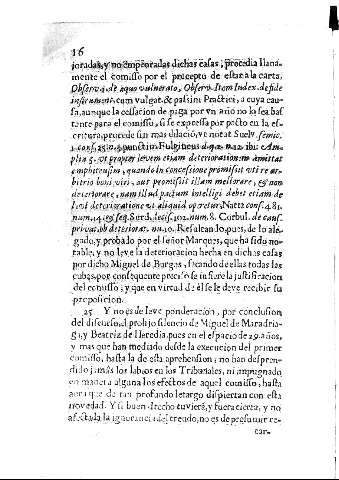 16
joradas, y no empeoradas dichas casas, procedia llana-
mente el comisso por el precepto de estar a la carta,
Observ. de aquo vulnerato, Observ. Item Index. de fide
instrument. cum vulgat. & passim Practici, a cuya cau-
sa, aunque la cessacion de paga por vn año no lo sea bas-
tante para el comisso, si se expressa por pacto en la es-
critura, procede sin mas dilació, vt notat Suelv. semic.
1. conf. 25. n. 4. punctim Fulgineus
plia 5. vt propter levem etiam deteriorationem amittat
emphiteusim, quando in concessione promissit vti re ar-
bitrio boni viri, aut promissit illam meliorare, & non
deteriorare, nam illud pactum intelligi debet etiam de
levi deterioratione vt aliquid operetur, Natta cons. 481.
num. 14. & seq. Surd. decis. 102. num. 8. Corbul. de caus.
privat. ob deteriorat. nu. 10. Resultando, pues, de lo ale-
gado, y probado por el señor Marques, que ha sido no-
table, y no leve la deterioracion hecha en dichas casas
por dicho Miguel de Burgos, sacando de ellas todas las
cubas, por consequente preciso se infiere la justificacion
del comisso; y que en virtud de él se le deve recibir su
proposicion.
25 Y no es de leve ponderacion, por conclusion
del discurso, el prolijo silencio de Miguel de Maradria-
ga, y Beatriz de Heredia, pues en el espacio de 29. años,
y mas que han mediado desde la execucion del primer
comisso, hasta la de esta aprehension; no han despren-
dido jamàs los labios en los Tribunales, ni impugnado
en manera alguna los efectos de aquel comisso, hasta
aora que de tan profundo letargo dispiertan con esta
novedad. Y si buen drecho tuviera, y fuera cierta, y no
afectada la ignorancia del treudo, no es de presumir re-
tar-